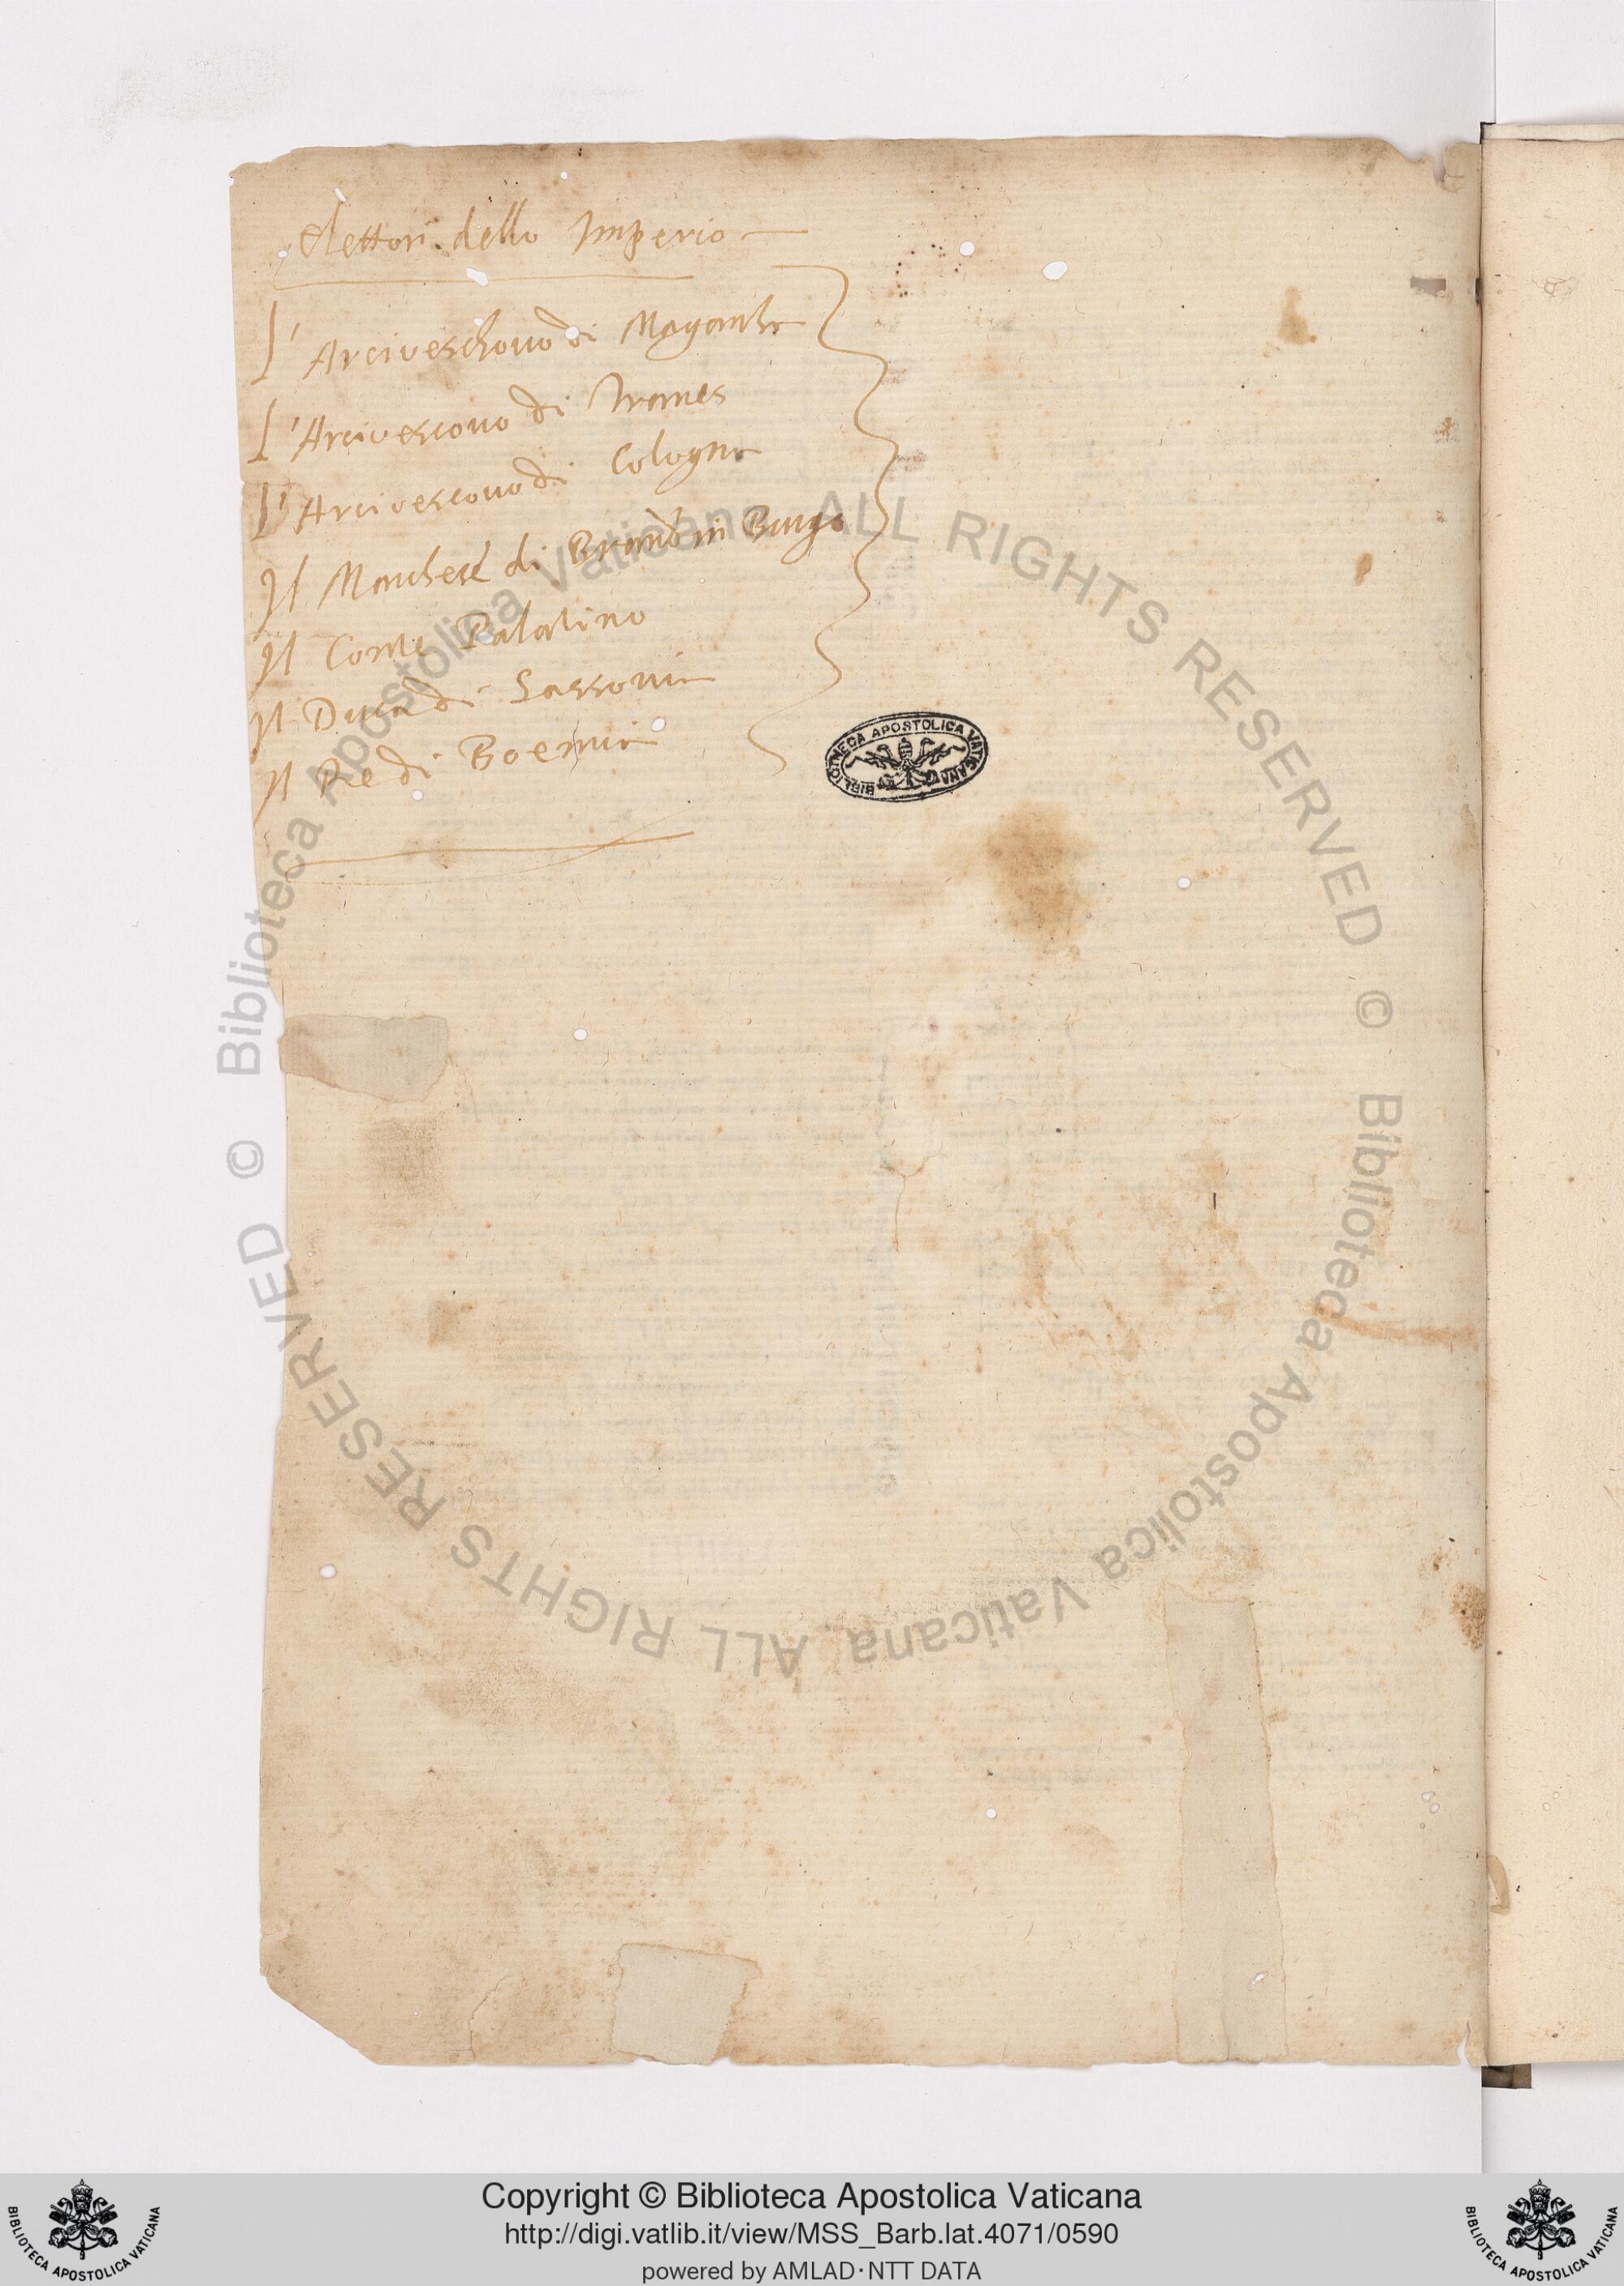 Elettori dello Imperio
L'Arciveschovo di Maganza
L'Arcivescovo di Treves
L'Arcivescovo di Cologna
Il Marchese di Brandinburgo
Il Conte Palatino
Il Duca di Sassonia
Il Re di Boemia
BIBLIOTECA APOSTOLICA VATICANA
© Biblioteca Apostolica Vaticana ALL RIGHTS RESERVED
© Biblioteca Apostolica Vaticana ALL RIGHTS RESERVED
Copyright © Biblioteca Apostolica Vaticana
http://digi.vatlib.it/view/MSS_Barb.lat.4071/0590
powered by AMLAD·NTT DATA
BIBLIOTECA APOSTOLICA VATICANA
BIBLIOTECA APOSTOLICA VATICANA